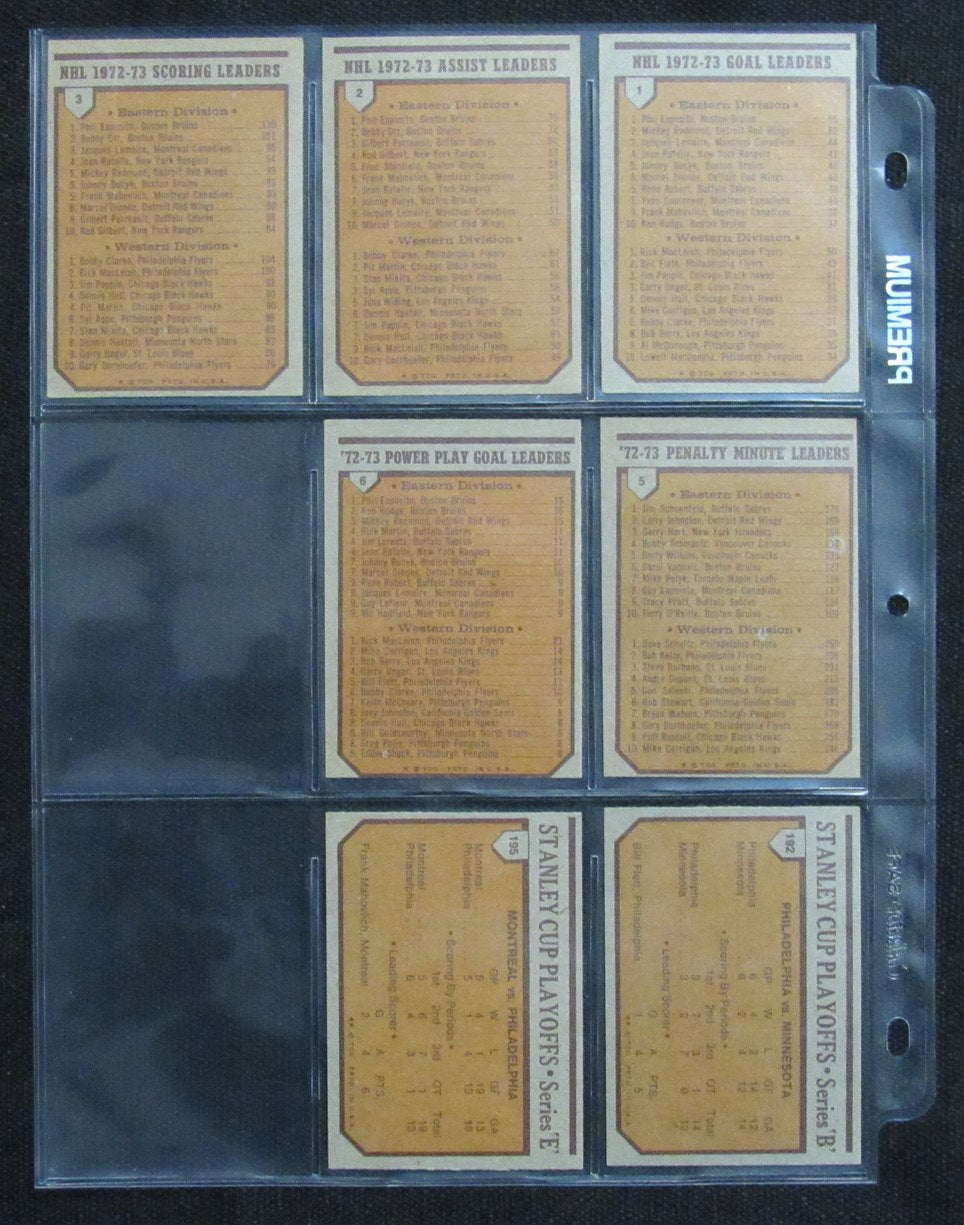 NHL 1972-73 SCORING LEADERS
3
• Eastern Division •
1. Phil Esposito, Boston Bruins 130
2. Bobby Orr, Boston Bruins 101
3. Jacques Lemaire, Montreal Canadiens 95
4. Jean Ratelle, New York Rangers 94
5. Mickey Redmond, Detroit Red Wings 93
5. Johnny Bucyk, Boston Bruins 93
Frank Mahovlich, Montreal Canadiens 93
8. Marcel Dionne, Detroit Red Wings 90
9. Gilbert Perreault, Buffalo Sabres 88
10. Rod Gilbert, New York Rangers 84
• Western Division •
1. Bobby Clarke, Philadelphia Flyers 104
2. Rick MacLeish, Philadelphia Flyers 100
3. Jim Pappin, Chicago Black Hawks 92
4. Dennis Hull, Chicago Black Hawks 90
4. Pit Martin, Chicago Black Hawks 90
Syl Apps, Pittsburgh Penguins
7. Stan Mikita, Chicago Black Hawks 83
8. Dennis Hextall, Minnesota North Stars 82
9. Garry Unger, St. Louis Blues 80
10. Gary Dornhoefer, Philadelphia Flyers
★ © TCG PRTD. IN U.S.A.
NHL 1972-73 ASSIST LEADERS
2
• Eastern Division •
1. Phil Esposito, Boston Bruins 75
2. Bobby Orr, Boston Bruins 72
3. Gilbert Perreault, Buffalo Sabres 60
4. Rod Gilbert, New York Rangers
5. Fred Stanfield, Boston Bruins 58
Frank Mahovlich, Montreal Canadiens
7. Jean Ratelle, New York Rangers 53
7. Johnny Bucyk, Boston Bruins 53
9. Jacques Lemaire, Montreal Canadiens 51
10. Marcel Dionne, Detroit Red Wings 50
• Western Division •
1. Bobby Clarke, Philadelphia Flyers 67
2. Pit Martin, Chicago Black Hawks 61
3. Stan Mikita, Chicago Black Hawks 56
3. Syl Apps, Pittsburgh Penguins 56
5. Juha Widing, Los Angeles Kings 54
6. Dennis Hextall, Minnesota North Stars 52
7. Jim Pappin, Chicago Black Hawks 51
7. Dennis Hull, Chicago Black Hawks 51
9. Rick MacLeish, Philadelphia Flyers 50
10. Gary Dornhoefer, Philadelphia Flyers 49
★ © TCG PRTD. IN U.S.A.
NHL 1972-73 GOAL LEADERS
1
• Eastern Division •
1. Phil Esposito, Boston Bruins 55
2. Mickey Redmond, Detroit Red Wings 52
3. Jacques Lemaire, Montreal Canadiens 44
4. Jean Ratelle, New York Rangers 41
5. Johnny Bucyk, Boston Bruins 40
5. Marcel Dionne, Detroit Red Wings 40
5. Rene Robert, Buffalo Sabres 40
Yvan Cournoyer, Montreal Canadiens 40
9. Frank Mahovlich, Montreal Canadiens 38
10. Ken Hodge, Boston Bruins 37
• Western Division •
1. Rick MacLeish, Philadelphia Flyers 50
2. Bill Flett, Philadelphia Flyers 43
3. Jim Pappin, Chicago Black Hawks 41
3. Garry Unger, St. Louis Blues 41
5. Dennis Hull, Chicago Black Hawks 39
6. Mike Corrigan, Los Angeles Kings 37
6. Bobby Clarke, Philadelphia Flyers 37
Bob Berry, Los Angeles Kings
9. Al McDonough, Pittsburgh Penguins 35
10. Lowell MacDonald, Pittsburgh Penguins 34
★ © TCG PRTD. IN U.S.A.
PREMIUM
'72-73 POWER PLAY GOAL LEADERS
6
• Eastern Division •
1. Phil Esposito, Boston Bruins
2. Ken Hodge, Boston Bruins 16
3. Mickey Redmond, Detroit Red Wings 15
4. Rick Martin, Buffalo Sabres 11
4. Jim Lorentz, Buffalo Sabres 11
4. Jean Ratelle, New York Rangers 11
7. Johnny Bucyk, Boston Bruins 10
7. Marcel Dionne, Detroit Red Wings 10
9. Rene Robert, Buffalo Sabres 9
9. Jacques Lemaire, Montreal Canadiens 9
9. Guy Lafleur, Montreal Canadiens 9
9. Vic Hadfield, New York Rangers 9
• Western Division •
1. Rick MacLeish, Philadelphia Flyers 21
2. Mike Corrigan, Los Angeles Kings 14
2. Bob Berry, Los Angeles Kings 14
4. Garry Unger, St. Louis Blues 13
5. Bill Flett, Philadelphia Flyers 11
6. Bobby Clarke, Philadelphia Flyers 10
7. Keith McCreary, Pittsburgh Penguins 9
8. Joey Johnston, California Golden Seals 8
8. Dennis Hull, Chicago Black Hawks 8
8. Bill Goldsworthy, Minnesota North Stars 8
8. Greg Polis, Pittsburgh Penguins 8
8. Eddie Shack, Pittsburgh Penguins 8
★ © TCG PRTD. IN U.S.A.
'72-73 PENALTY MINUTE LEADERS
5
• Eastern Division •
1. Jim Schoenfeld, Buffalo Sabres 178
2. Larry Johnston, Detroit Red Wings 169
3. Gerry Hart, New York Islanders 158
4. Bobby Schmautz, Vancouver Canucks
5. Barry Wilkins, Vancouver Canucks
6. Carol Vadnais, Boston Bruins 127
7. Mike Pelyk, Toronto Maple Leafs 118
8. Guy Lapointe, Montreal Canadiens 117
9. Tracy Pratt, Buffalo Sabres 116
10. Terry O'Reilly, Boston Bruins 109
• Western Division •
1. Dave Schultz, Philadelphia Flyers 259
2. Bob Kelly, Philadelphia Flyers 238
3. Steve Durbano, St. Louis Blues 231
4. Andre Dupont, St. Louis Blues 215
5. Don Saleski, Philadelphia Flyers 205
6. Bob Stewart, California Golden Seals 181
7. Bryan Watson, Pittsburgh Penguins 179
8. Gary Dornhoefer, Philadelphia Flyers 168
9. Phil Russell, Chicago Black Hawks 156
10. Mike Corrigan, Los Angeles Kings 146
★ © TCG PRTD. IN U.S.A.
STANLEY CUP PLAYOFFS • Series 'E'
195
MONTREAL vs. PHILADELPHIA
GP W L GF GA
Montreal 5 4 1 19 13
Philadelphia 5 1 4 13 19
• Scoring By Periods •
1st 2nd 3rd OT Total
Montreal 5 6 7 1 19
Philadelphia 6 4 3 1 13
• Leading Scorer •
G A PTS.
Frank Mahovlich, Montreal 2 4 6
STANLEY CUP PLAYOFFS • Series 'B'
192
PHILADELPHIA vs. MINNESOTA
GP W L GF GA
Philadelphia 6 4 2 14 12
Minnesota 6 2 4 12 14
• Scoring By Periods •
1st 2nd 3rd OT Total
Philadelphia 3 7 3 1 14
Minnesota 3 2 7 0 12
• Leading Scorer •
G A PTS.
Bill Flett, Philadelphia 1 4 5